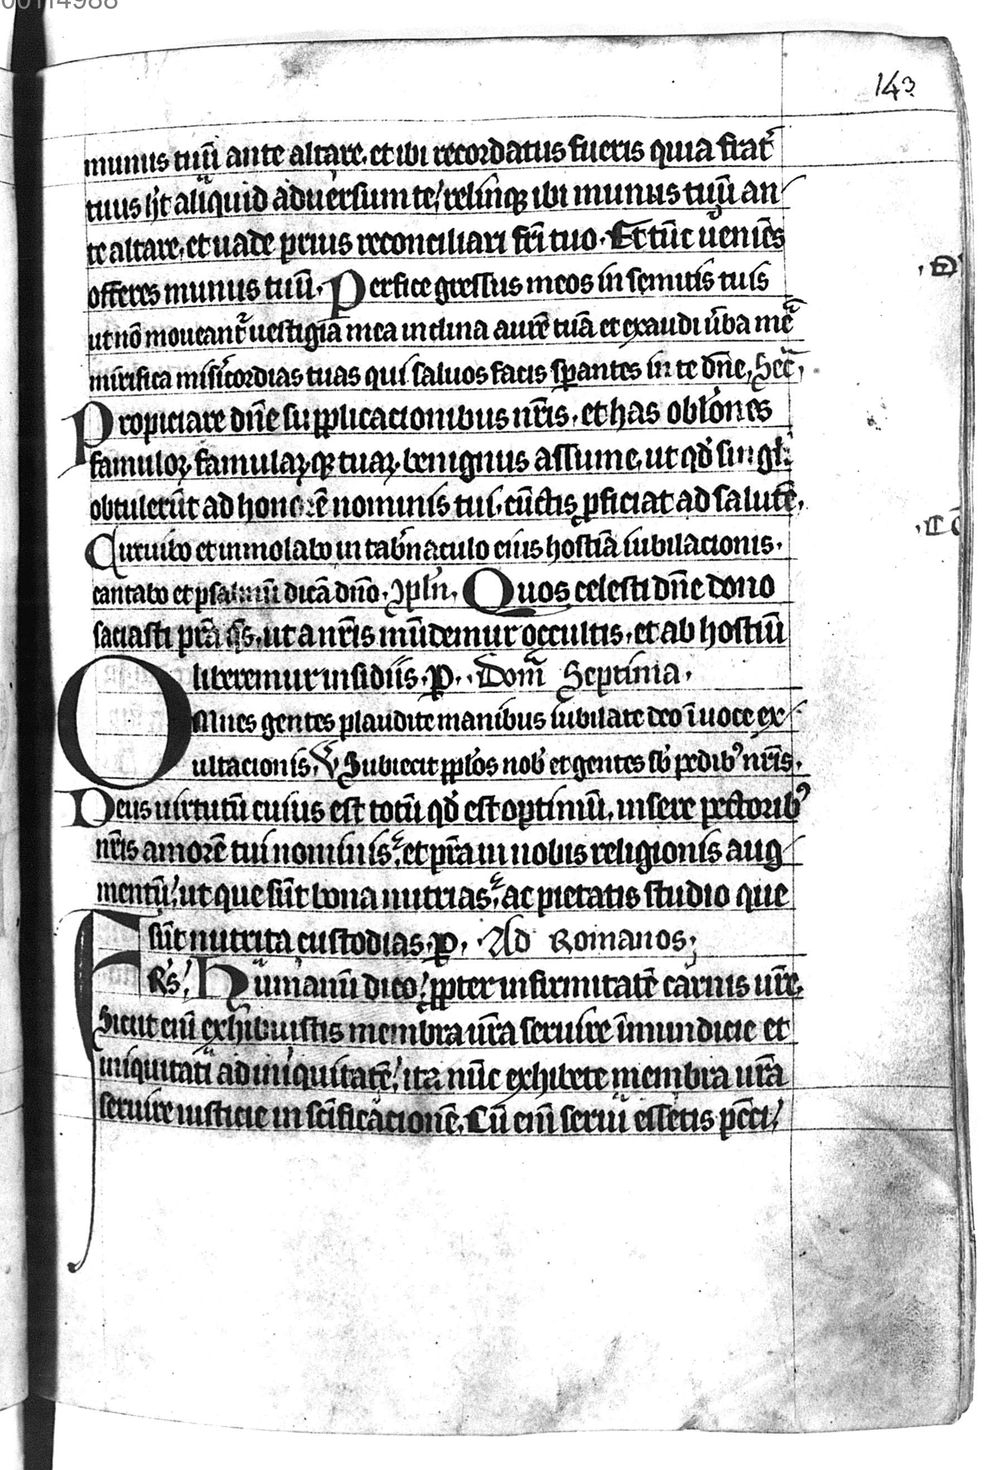 00114988
143
munus tuū ante altare. et ibi recordatus fueris quia frat̄
tuus h̄t aliquid aduersum te / relinq; ibi munus tuū an
te altare, et uade prius reconciliari fr̄i tuo. Et tūc ueniēs
offeres munus tuū. Perfice gressus meos in semitis tuis
ut nō moueant̄ uestigia mea inclina aurē tuā et exaudi ūba mea
mirifica misicordias tuas qui saluos facis sperantes in te dn̄e, Secr̄,
Propiciare dn̄e supplicacionibus nr̄is, et has oblōnes
famuloꝝ famulaꝝq; tuaꝝ benignus assume, ut qd̄ singl̄i
obtulerūt ad honorē nominis tui, cūctis ꝓficiat ad salutē,
Circuibo et immolabo in tab̄naculo eius hostiā iubilacionis.
cantabo et psalmū dicā dn̄o. Ꝯpl̄n, Quos celesti dn̄e dono
saciasti pr̄a qs, ut a nr̄is mūdemur occultis, et ab hostiū
liberemur insidiis. ꝑ. Dom̄ Septima.
OMnes gentes plaudite manibus iubilate deo ī uoce ex
ultacionis, ℣ Subiecit pplos nob̄ et gentes sb̄ pedibꝰ nr̄is.
Deus uirtutū cuius est totū qd̄ est optimū, insere pectoribꝰ
nr̄is amorē tui nominis, et pr̄a in nobis religionis aug
mentū, ut que sūt bona nutrias, ac pietatis studio que
sūt nutrita custodias. ꝑ. Ad Romanos,
FRs, Humanū dico, ꝓpter infirmitatē carnis ur̄e.
Sicut eni exhibuistis membra ur̄a seruire īmundicie et
iniquitati ad iniquitatē, ita nūc exhibete membra ur̄a
seruire iusticie in sc̄ificacionē. Cū eni serui essetis pcc̄i,